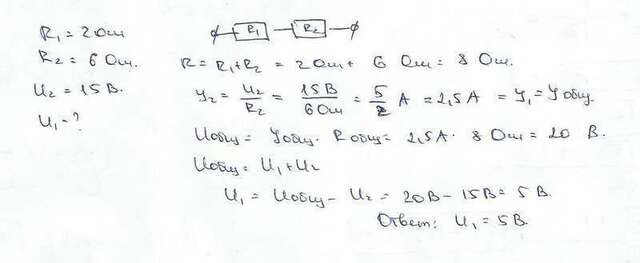 R₁ = 2 Ом
R₂ = 6 Ом.
U₂ = 15 В.
U₁ - ?
R₁ R₂
R = R₁ + R₂ = 2 Ом + 6 Ом = 8 Ом.
I₂ = U₂/R₂ = 15 В/6 Ом = 5/2 А = 2,5 А = I₁ = I общ.
U общ = I общ · R общ = 2,5 А · 8 Ом = 20 В.
U общ = U₁ + U₂
U₁ = U общ - U₂ = 20 В - 15 В = 5 В.
Ответ: U₁ = 5 В.